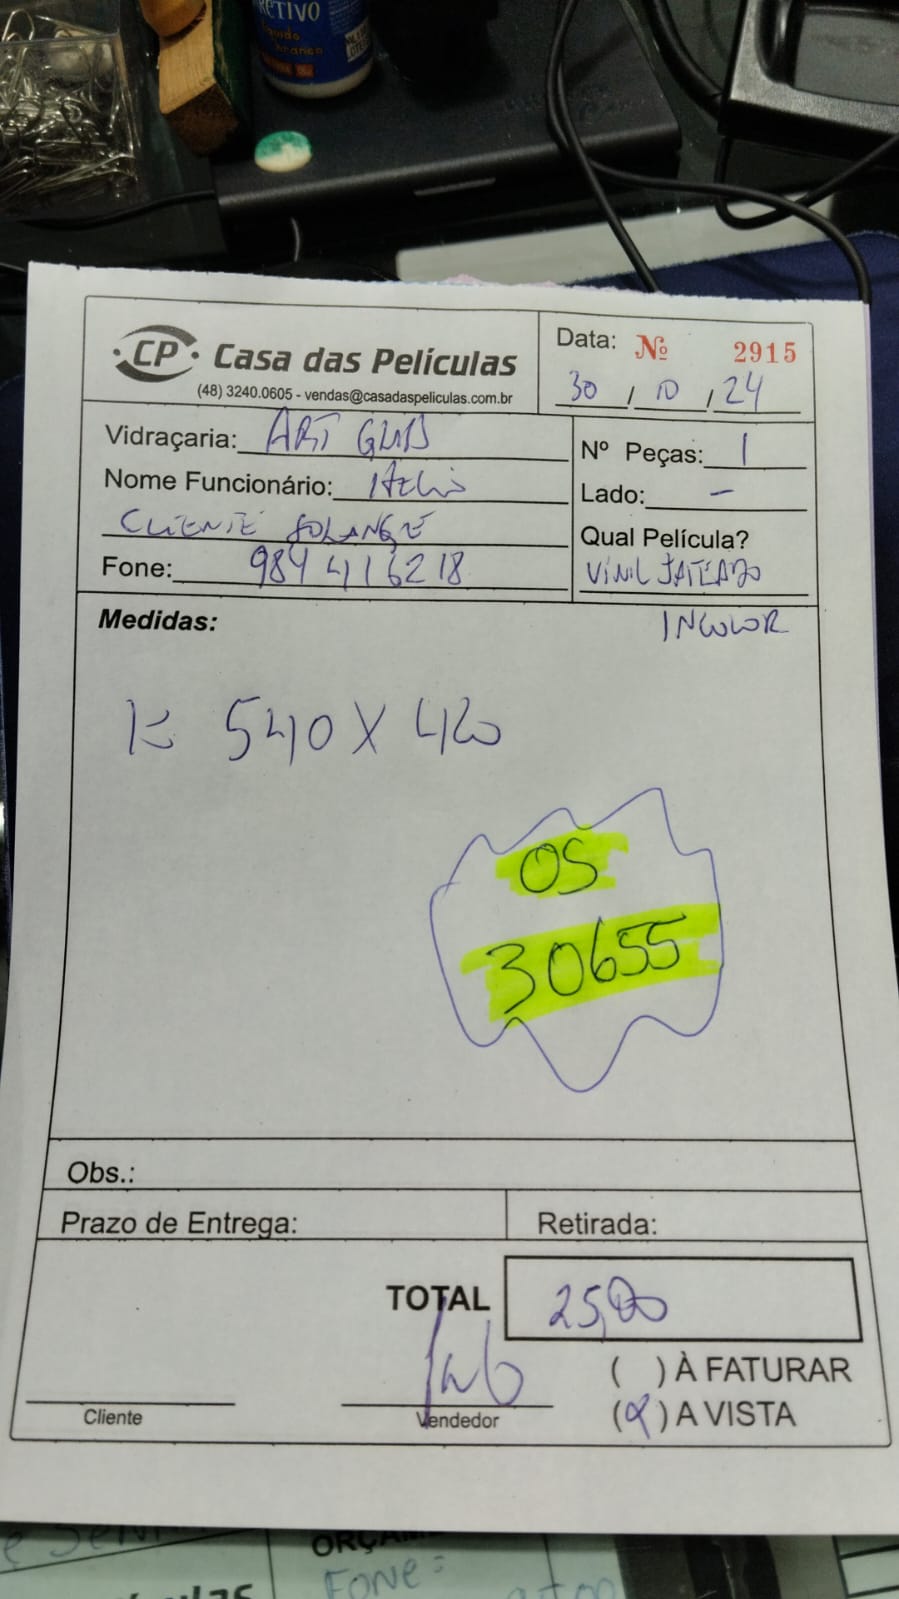 RETIVO
CP Casa das Películas
(48) 3240.0605 - vendas@casadaspeliculas.com.br
Data: Nº 2915
30 / 10 / 24
Vidraçaria: ART
Nº Peças: 1
Nome Funcionário:
Lado: -
CLIENTE SOLANGE
Qual Película?
Fone: 984416218
VINIL JATEADO
Medidas:
INCOLOR
540 X 420
OS
30655
Obs.:
Prazo de Entrega:
Retirada:
TOTAL 25,00
( ) À FATURAR
Cliente
Vendedor
(X) A VISTA
FONE: